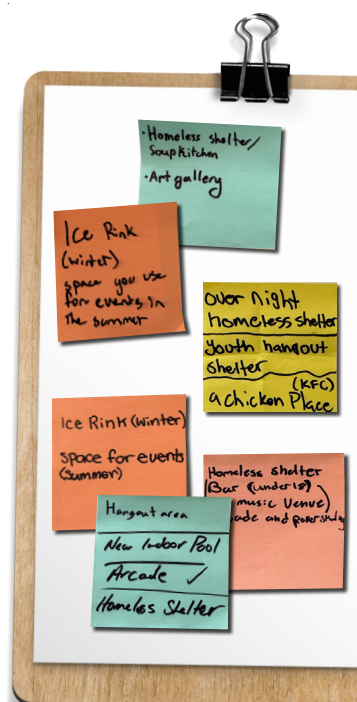 • Homeless shelter/
Soup Kitchen
• Art gallery
Ice Rink
(winter)
space you use
for events in
the summer
over night
homeless shelter
youth hangout
shelter
(KFC)
a chicken Place
Ice Rink (winter)
space for events
(summer)
Homeless shelter
(Bar (under 18)
music venue)
and
Hangout area
New Indoor Pool
Arcade ✓
Homeless Shelter